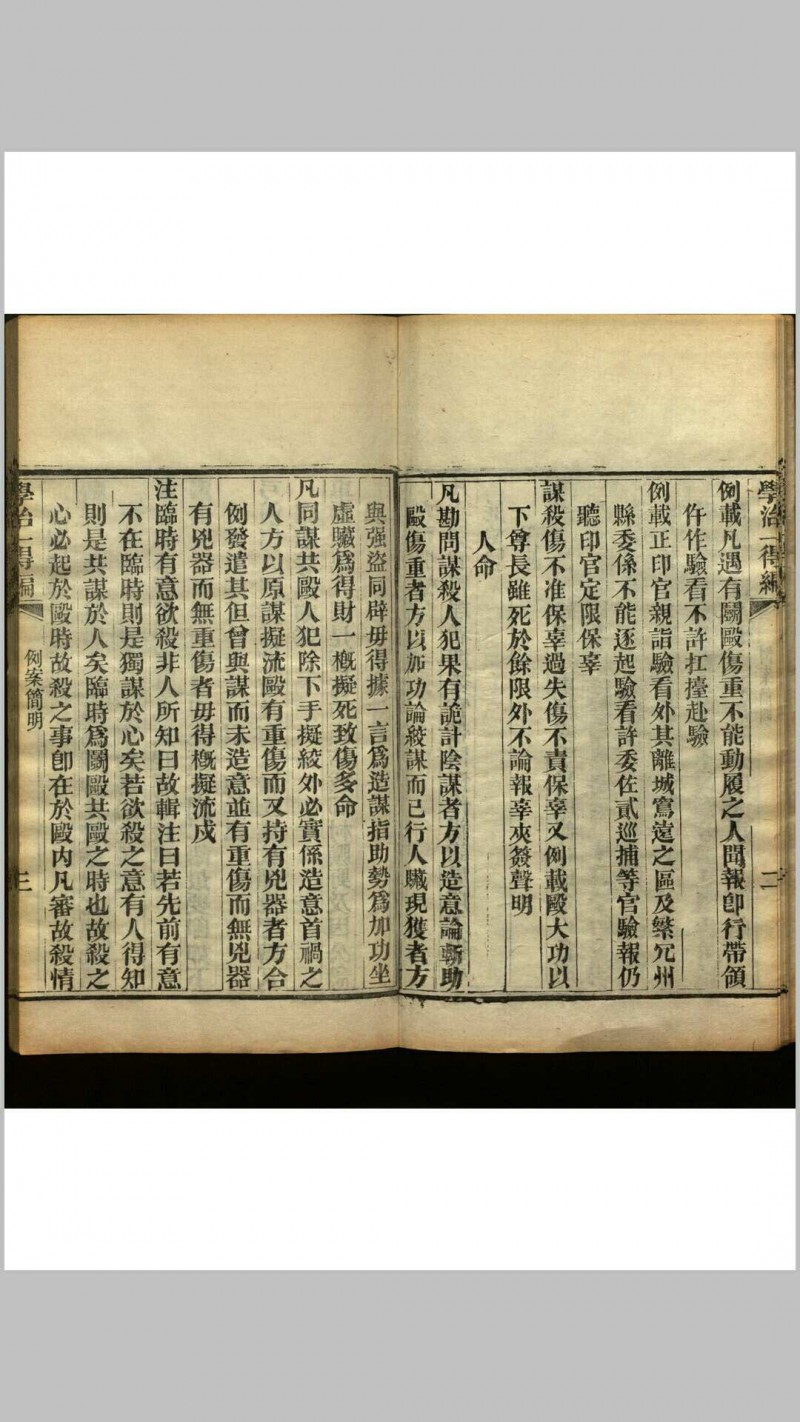 學治一得編
二
例載凡遇有鬭毆傷重不能動履之人聞報卽行帶領
仵作驗看不許扛擡赴驗
例載正印官親詣驗看外其離城寫遠之區及繁冗州
縣委係不能逐起驗看許委佐貳巡捕等官驗報仍
聽印官定限保辜
謀殺傷不准保辜過失傷不責保辜又例載毆大功以
下尊長雖死於餘限外不論報辜夾簽聲明
人命
凡勘問謀殺人犯果有詭計陰謀者方以造意論斬助
毆傷重者方以加功論絞謀而已行人贓現獲者方
與强盜同辟毋得據一言爲造謀指助勢爲加功坐
虛贓爲得財一槪擬死致傷多命
凡同謀共毆人犯除下手擬絞外必實係造意首禍之
人方以原謀擬流毆有重傷而又持有兇器者方合
例發遣其但曾與謀而未造意並有重傷而無兇器
有兇器而無重傷者毋得槪擬流戍
注臨時有意欲殺非人所知曰故輯注曰若先前有意
不在臨時則是獨謀於心矣若欲殺之意有人得知
則是共謀於人矣臨時爲鬭毆共毆之時也故殺之
心必起於毆時故殺之事卽在於毆內凡審故殺情
學治一得編
例案簡明
三